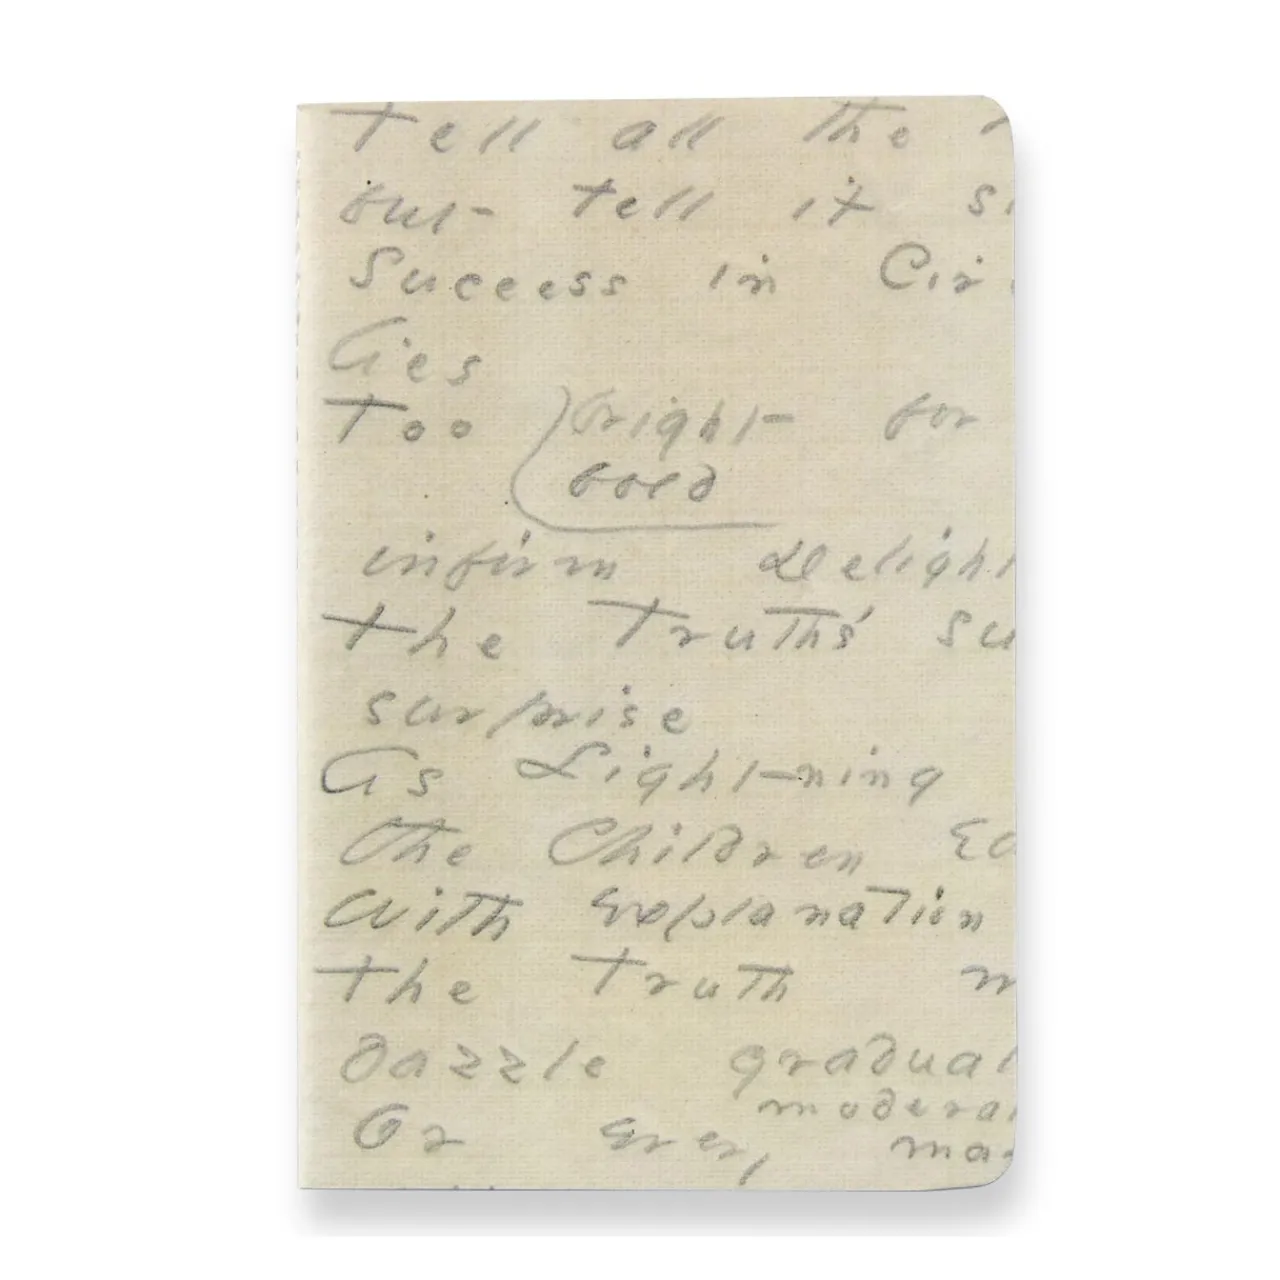 Tell all the T
but tell it sl
Success in Cir
lies
Too bright for
bold
infirm Delight
the Truth's su
surprise
As Lightning
the Children Ea
With explanation
the Truth m
dazzle gradual
moderat
Or every ma